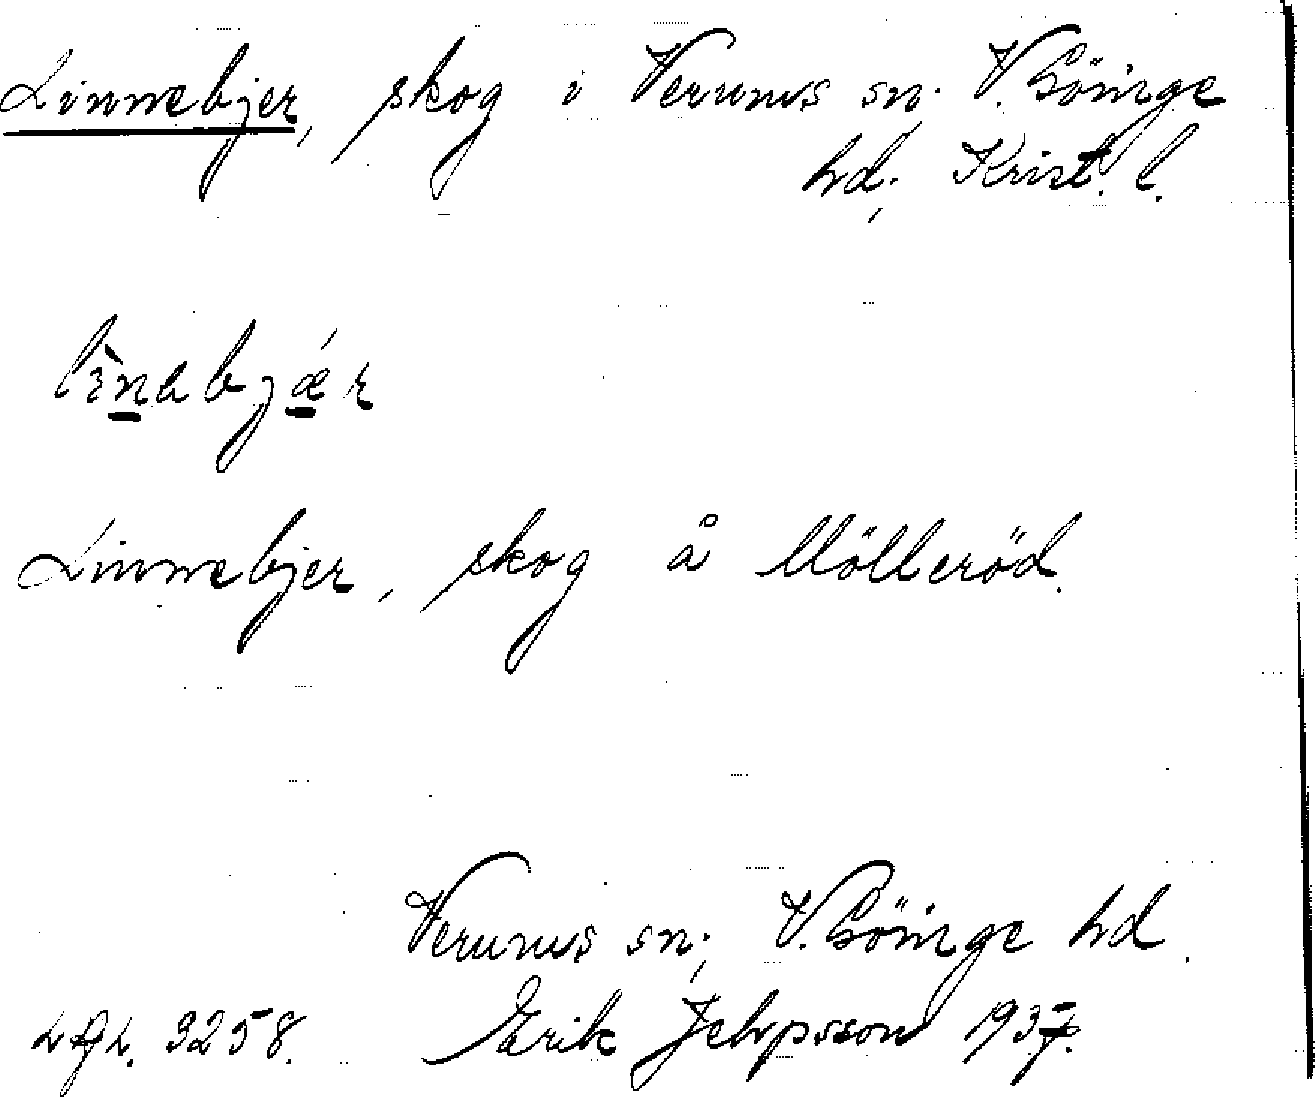 Linnebjer, skog i Verums sn. V. Göinge
hd, Krist. l.
lìnabjǽr
Linnebjer, skog å Mölleröd.
Verums sn, V. Göinge hd.
3258. Erik Jeppsson 1937.